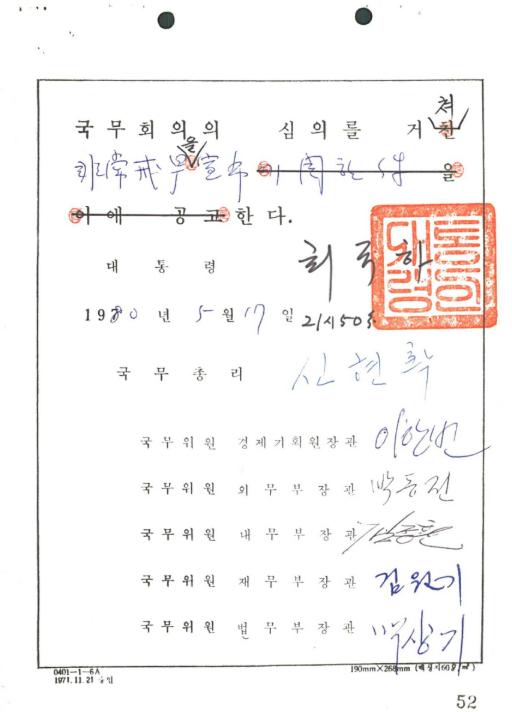 국무회의의 심의를 거쳐친
을
非常戒嚴宣布 에 関한 件 을
이에 공고한다.
대통령 최규하
대통령의인
1980년 5월 17일 21시50분
국무총리 신현확
국무위원 경제기획원장관 이한빈
국무위원 외무부장관 박동진
국무위원 내무부장관 김종환
국무위원 재무부장관 김원기
국무위원 법무부장관 백상기
0401-1-6A
1971.11.21 승인
190mm×268mm (백상지60g/㎡)
52